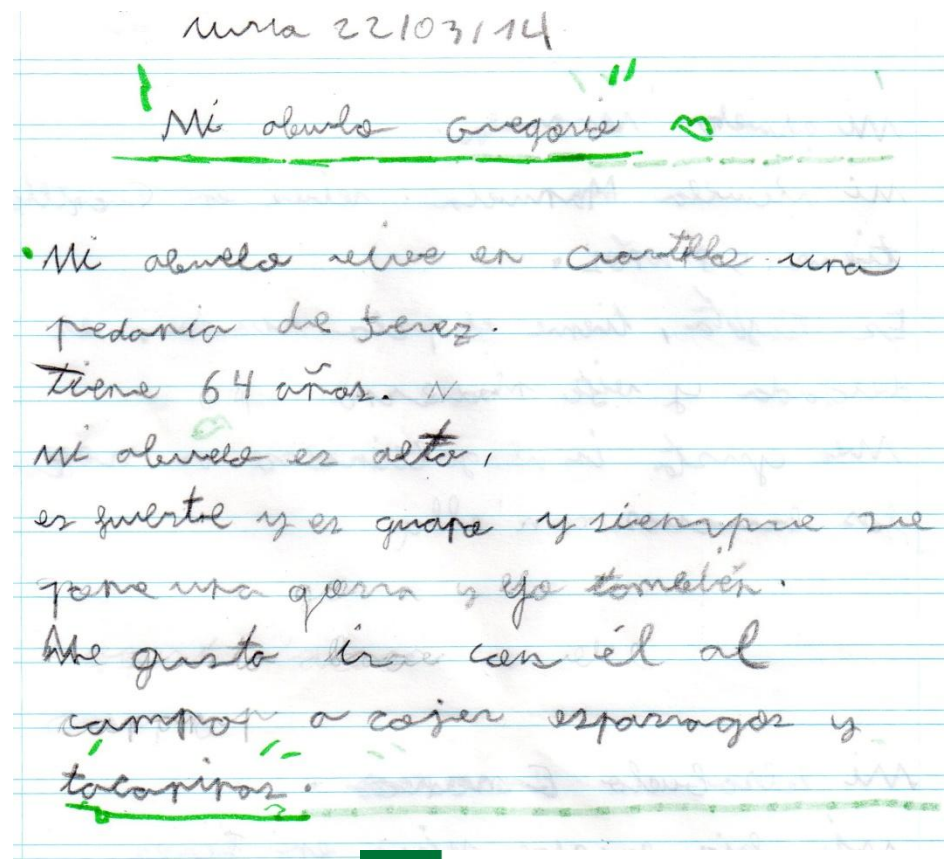 22/03/14
"Mi abuelo Gregorio"
Mi abuelo vive en Cuartillo una
pedania de Jerez.
tiene 64 años.
Mi abuelo es alto,
es fuerte y es guapo y siempre se
pone una gorra y yo también.
Me gusta ir con él al
campo a cojer esparragos y
"tacarinas".